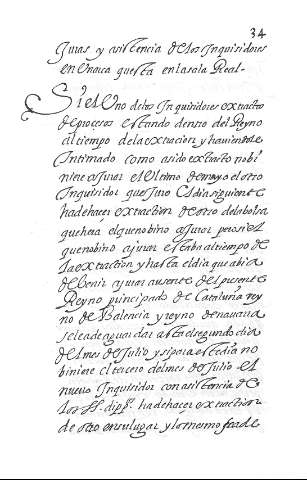 34
Juras y asistencia de los Inquisidores
en Unica questa en la sala Real-
Si el Uno delos Inquisidores extractos
de processo estando dentro del Reyno
al tiempo de la extraction y haviendole
Intimado como asido extracto no bi
niere a jurar el Ultimo de mayo el otro
Inquisidor que juro el dia siguiente
ha de hacer extraction de otro dela bolsa
que hera el que no bino a jurar pero si el
que no bino a jurar estaba al tiempo de
la extraction y hasta el dia que abia
de benir a jurar ausente del presente
Reyno principado de Cataluña rey
no de Balencia y reyno de nauarra
se le ade aguardar asta el segundo dia
del mes de Julio y si para este dia no
biniere el tercero del mes de Julio el
nuevo Inquisidor con asistencia de
los SS. dipp.s ha de hacer extraction
de otro en su lugar y lo mesmo se ade